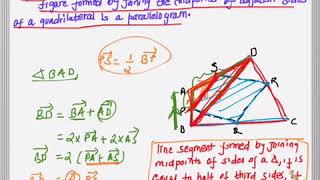 figure formed by joining the midpoints of adjacent sides
of a quadrilateral is a parallelogram.
PS = 1/2 BD
∠ BAD
BD = BA + AD
= 2×PA + 2×AS
BD = 2 (PA + AS)
D
S
A
R
P
B
Q
C
line segment formed by joining
midpoints of sides of a Δ, it is
equal to half of third sides, it